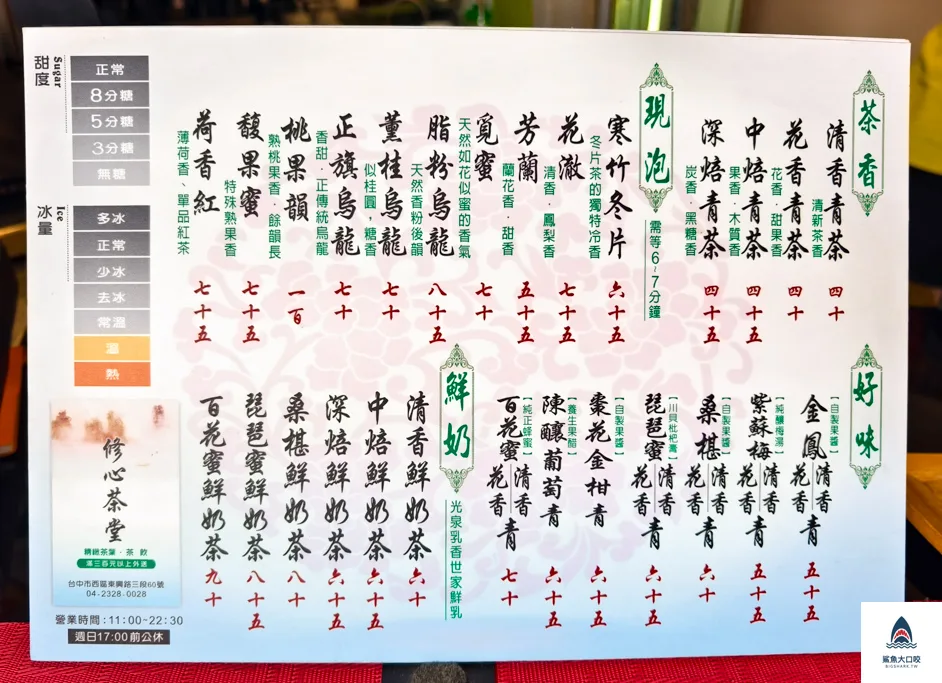 茶香
清香青茶
清新茶香
四十
花香青茶
花香．甜果香
四十
中焙青茶
果香．木質香
四十五
深焙青茶
炭香．黑糖香
四十五
現泡
需等6~7分鐘
寒竹冬片
冬片茶的獨特冷香
六十五
花澈
清香．鳳梨香
七十五
芳蘭
蘭花香．甜香
五十五
覓蜜
天然如花似蜜的香氣
七十
脂粉烏龍
天然香粉後韻
八十五
薰桂烏龍
似桂圓，糖香
七十
正旗烏龍
香甜．正傳統烏龍
七十
桃果韻
熟桃果香．餘韻長
一百
馥果蜜
特殊熟果香
七十五
荷香紅
薄荷香、單品紅茶
七十五
好味
金鳳 清香 花香 青
【自製果醬】
五十五
紫蘇梅 清香 花香 青
【純釀梅湯】
五十五
桑椹 清香 花香 青
【自製果醬】
六十
琵琶蜜 清香 花香 青
【川貝枇杷膏】
六十五
棗花金柑青
【自製果醬】
六十五
陳釀葡萄青
【養生果醋】
六十五
百花蜜 清香 花香 青
【純正蜂蜜】
七十
鮮奶
光泉乳香世家鮮乳
清香鮮奶茶
六十
中焙鮮奶茶
六十五
深焙鮮奶茶
六十五
桑椹鮮奶茶
八十
琵琶蜜鮮奶茶
八十五
百花蜜鮮奶茶
九十
Sugar
甜度
正常
8分糖
5分糖
3分糖
無糖
Ice
冰量
多冰
正常
少冰
去冰
常溫
溫
熱
修心茶堂
精緻茶葉．茶飲
滿三百元以上外送
台中市西區東興路三段60號
04-2328-0028
營業時間:11:00~22:30
週日17:00前公休
鯊魚大口咬
BIGSHARK.TW